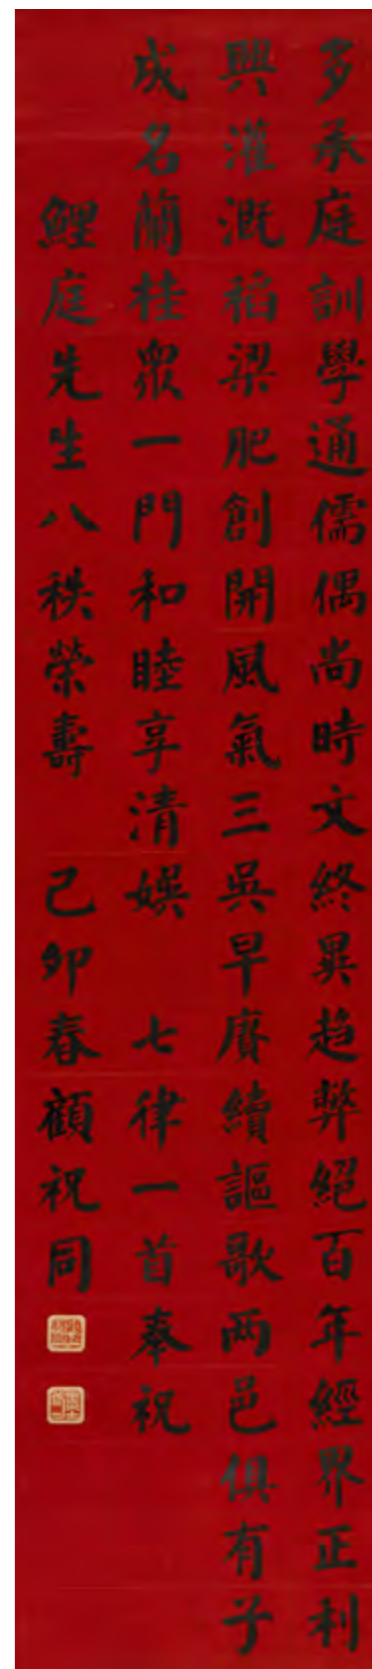 多承庭訓學通儒偶尚時文終異趋弊絕百年經界正利
興灌溉稻梁肥創開風氣三吳早賡續謳歌兩邑俱有子
成名蘭桂眾一門和睦享清娛 七律一首奉祝
鯉庭先生八秩榮壽 己卯春顧祝同